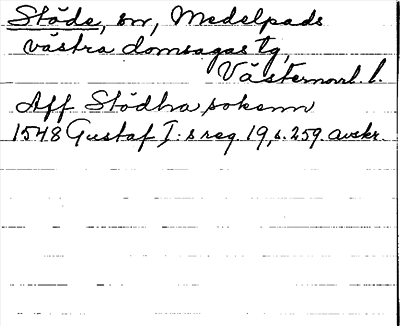 Stöde, sn, Medelpads
västra domsagas tg,
Västernorrl. l.
Aff Stödha sokenn
1548 Gustaf I:s reg 19, s. 259. avskr.